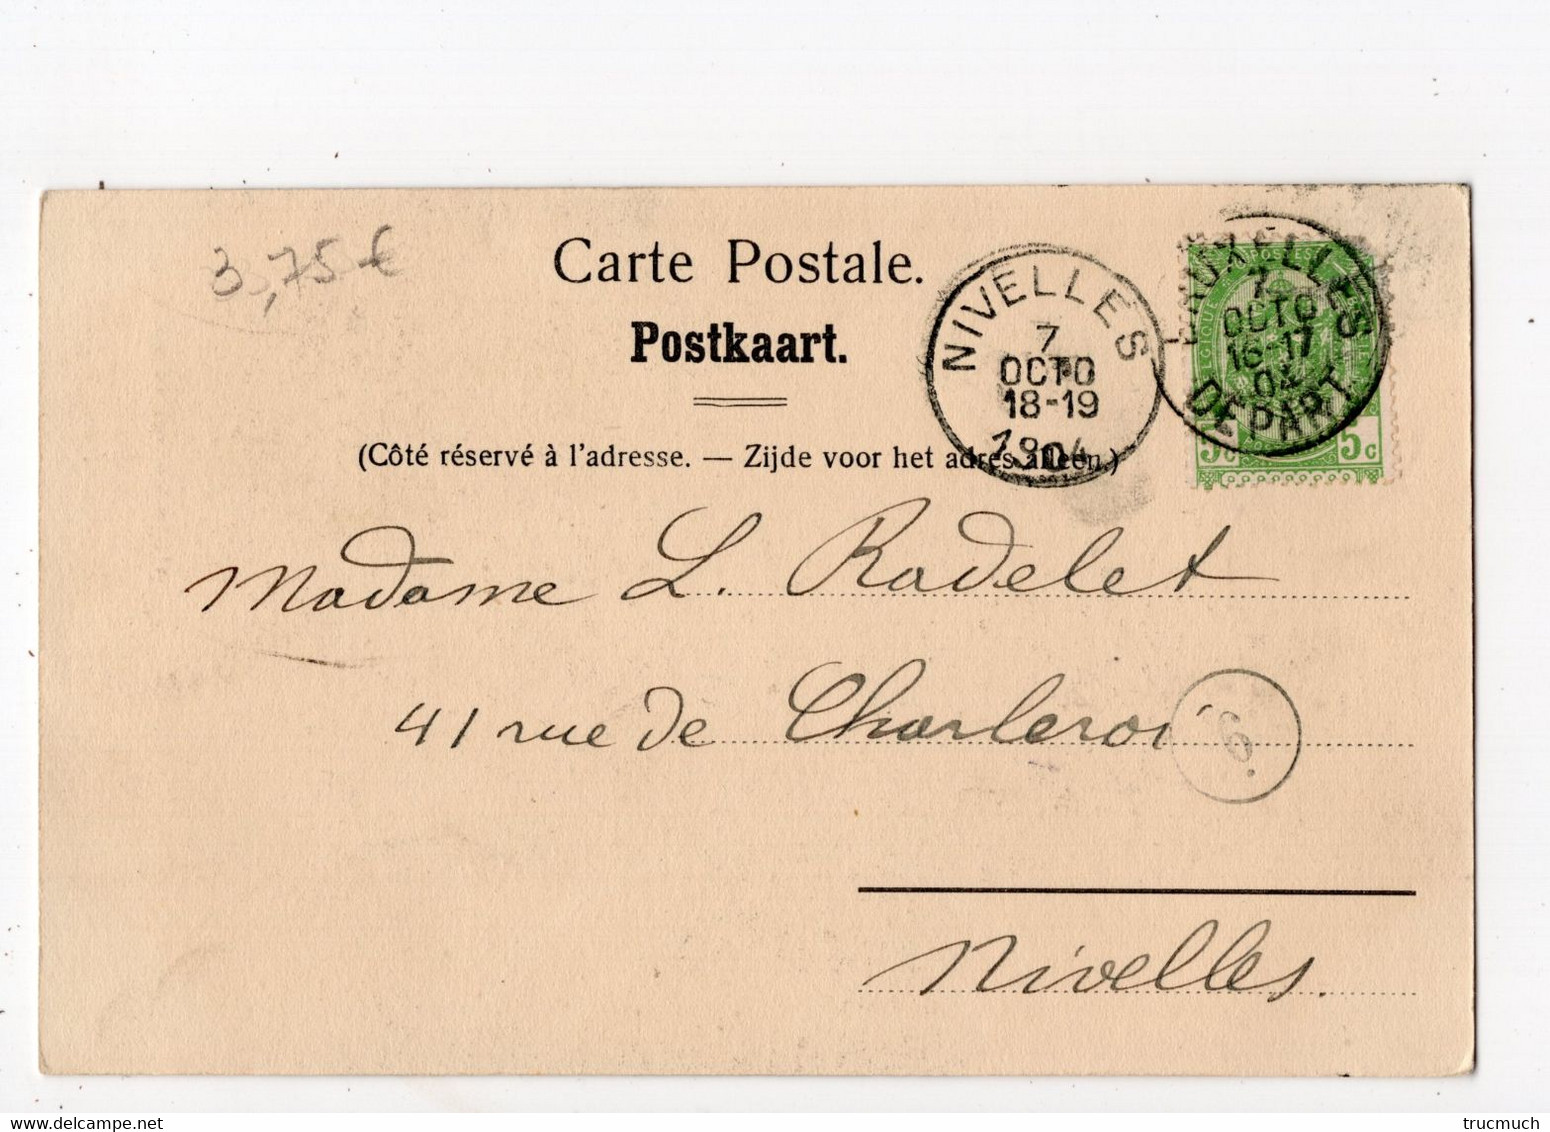 3,75 €
Carte Postale.
Postkaart.
(Côté réservé à l'adresse. — Zijde voor het adres alleen.)
NIVELLES
7
OCTO
18-19
1904
BRUXELLES
7
OCTO
16-17
04
DÉPART
5c 5c
Madame L. Radelet
41 rue de Charleroi
Nivelles.
trucmuch